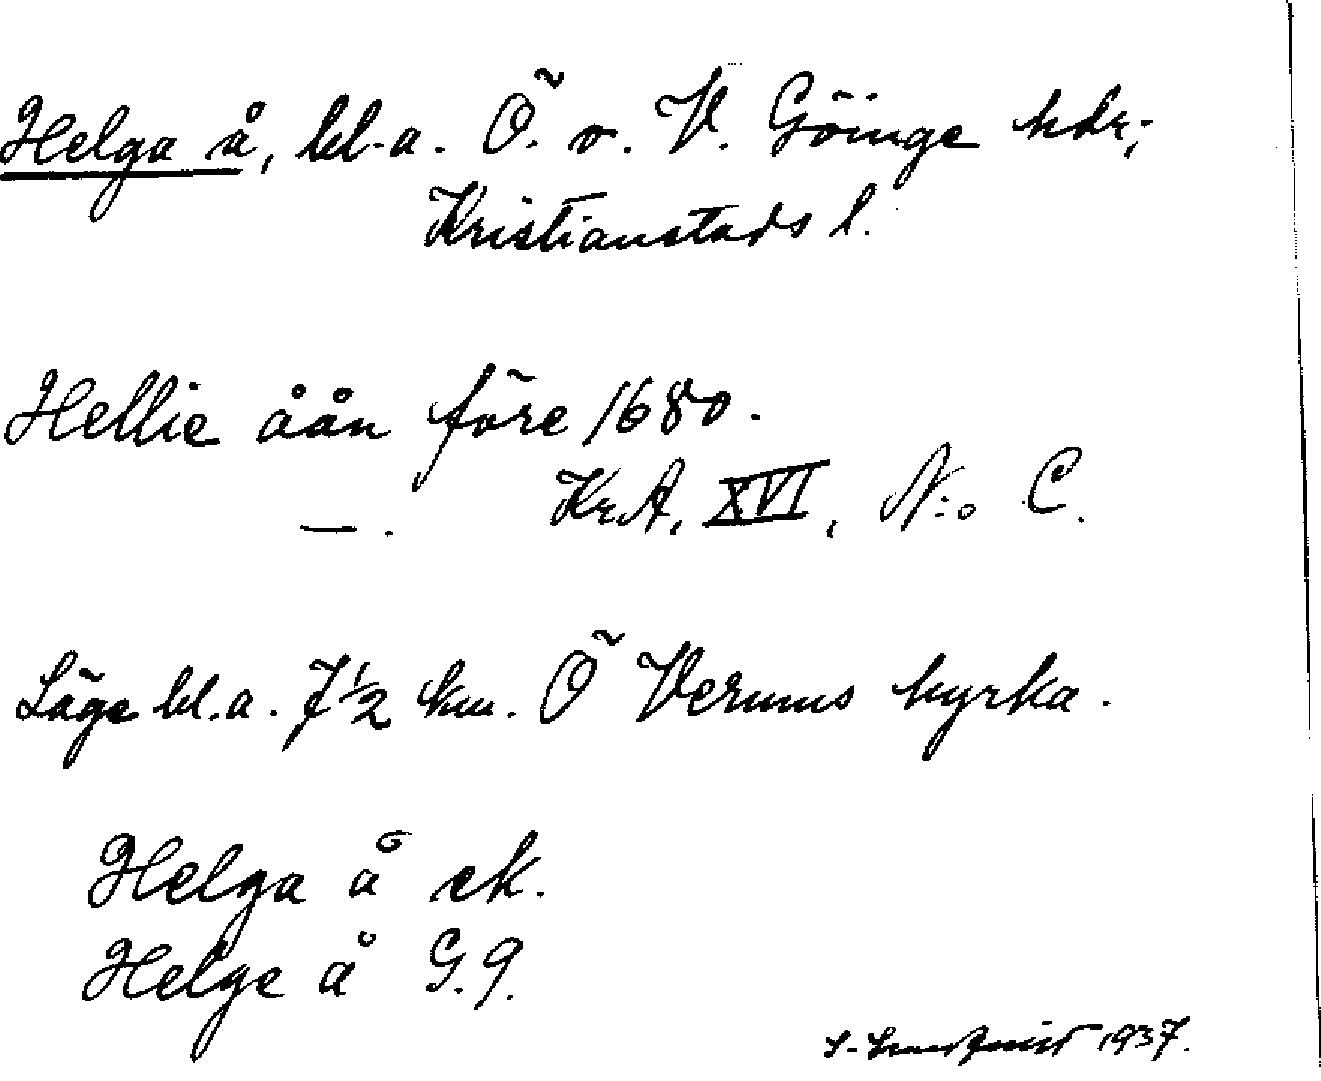 Helga å, bl.a. Ö. o. V. Göinge hdr;
Kristianstads l.
Hellie åån före 1680.
—. Kr.A, XVI, N:o C.
Läge bl.a. 7 1/2 km. Ö Verums kyrka.
Helga å ek.
Helge å G.9.
1937.